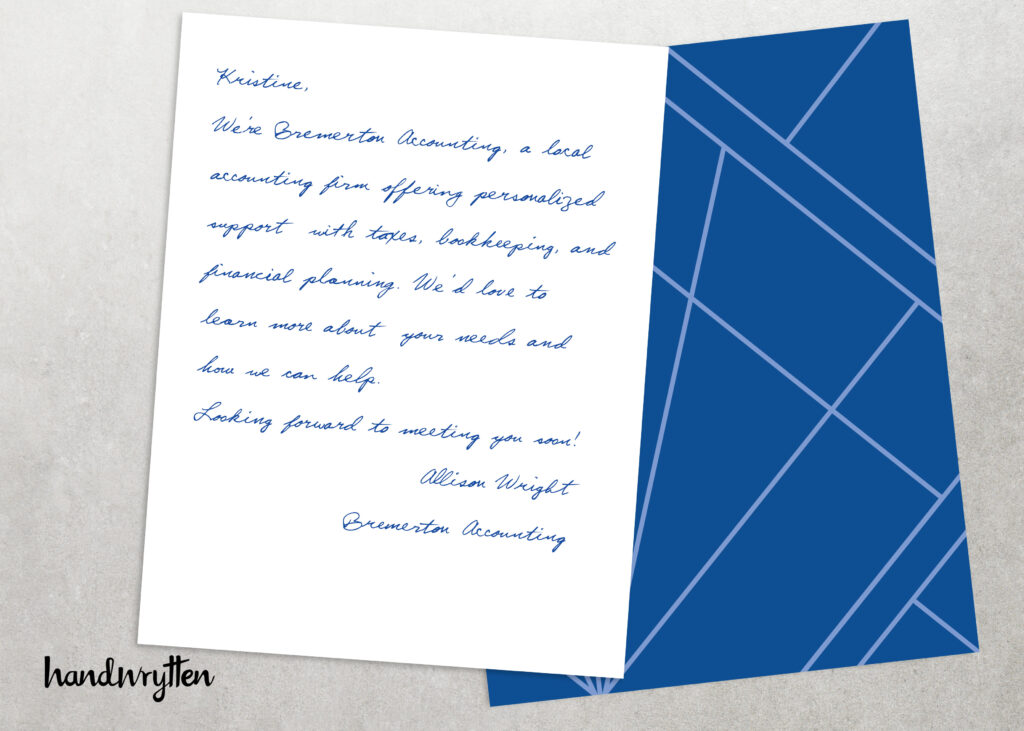 Kristine,
We're Bremerton Accounting, a local
accounting firm offering personalized
support with taxes, bookkeeping, and
financial planning. We'd love to
learn more about your needs and
how we can help.
Looking forward to meeting you soon!
Allison Wright
Bremerton Accounting
handwrytten